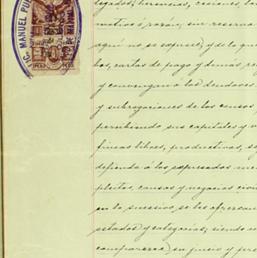 legados, herencias, cesiones, lo
motivos, razón, sin reserva
aquí no se exprese, y de lo que
bos, cartas de pago y demás re
y convengan á los deudores
y subrogaciones de los censos,
percibiendo sus capitales y
fincas libres, productivas, se
defienda á los expresados me
pleitos, causas y negocios civi
en lo sucesivo se les ofrezcan
estados y categorías; siendo
comparezca en juicio y
MANUEL